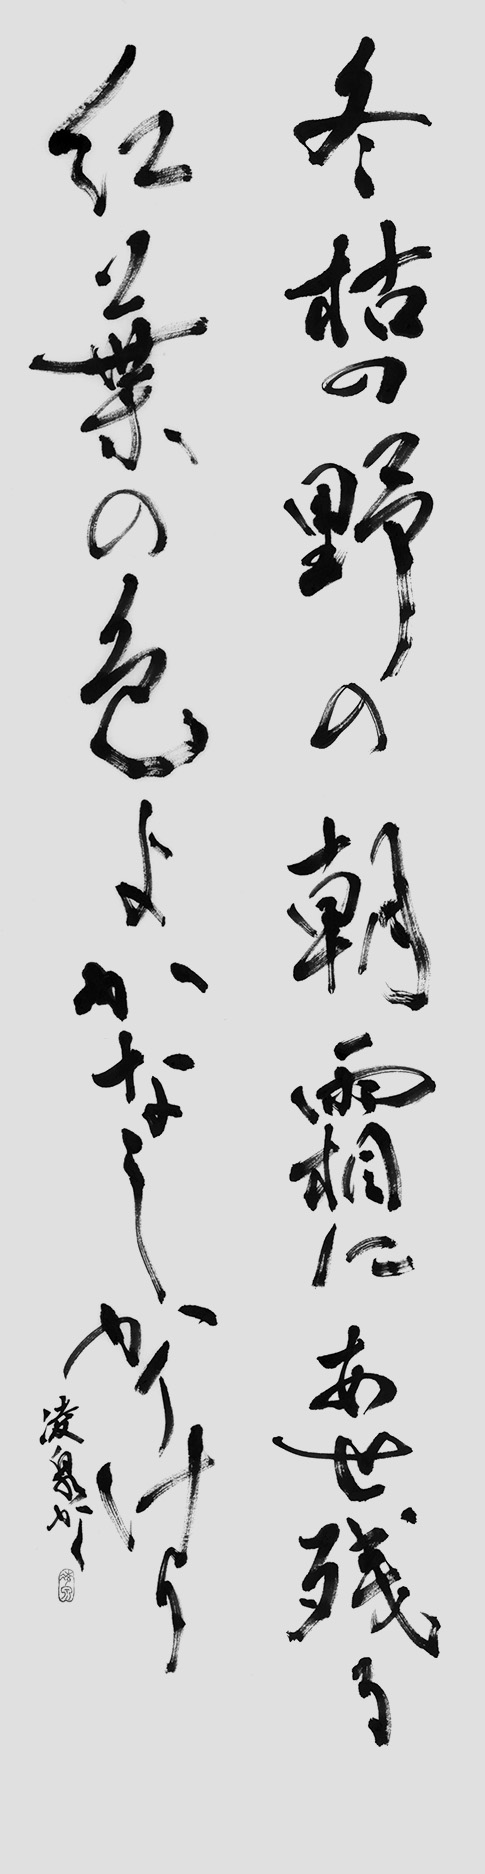 冬枯の野の朝霜にあせ残る
紅葉の色よかなしかりけり
凌泉かく